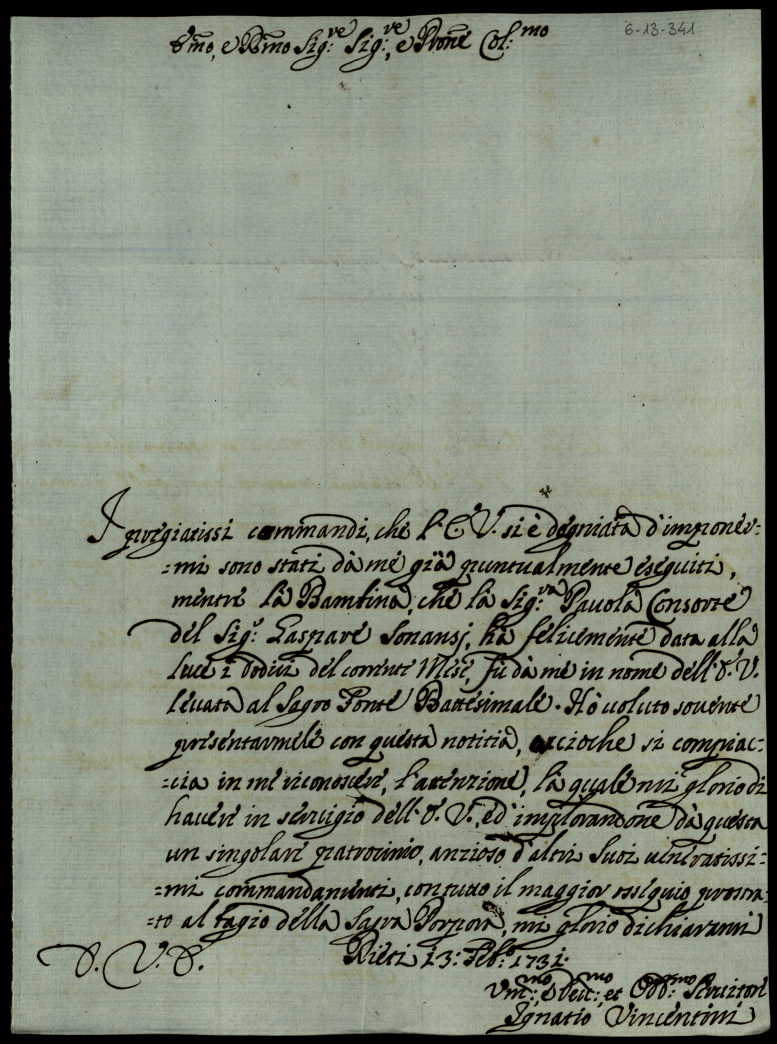 6-13-341
Em̃o, e Rm̃o Sig:re Sig:re, e Prone Col:mo
I pregiatissi commandi, che l'E V. si è degniata d'imponer=
=mi sono stati dà me già puntualmente eseguiti,
mentre la Bambina, che la Sig:ra Pavola Consorte
del Sig:r Gaspare ha felicemente data alla
luce i dodici del corrente Mese, fù dà me in nome dell'E. V.
levata al Sagro Fonte Battesimale. Hò voluto sovente
presentarmele con questa notitia, accioche si compiac=
=cia in me riconoscere, l'attenzione, la quale mi glorio di
havere in servigio dell'E. V., ed' implorandone dà questa
un singolare patrocinio, anzioso d'altri Suoi veneratissi=
=mi commandamenti, con tutto il maggior ossequio prostra=
=to al bagio della Sagra Porpora, mi glorio dichiararmi
D. V. E. Rieti 13: Feb:o 1731.
Um:mo, e Dev:mo, et Obb:mo Servitore
Ignatio Vincentini